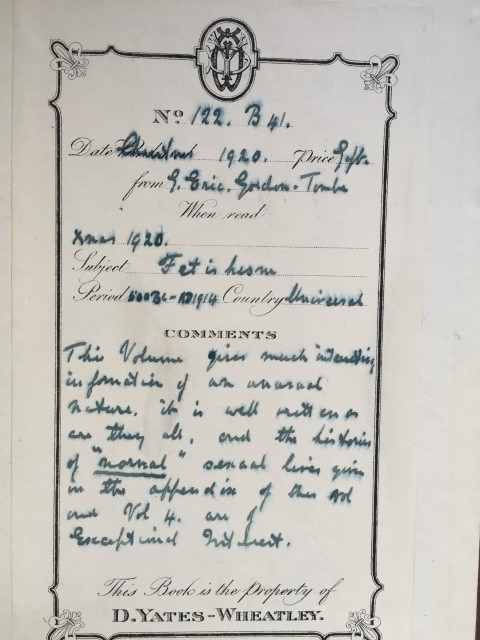 No 122. B 41.
Date 1920. Price Gift.
from G. Eric. Gordon-Tombe
When read
Xmas 1920.
Subject Fetishesm
Period 500 BC-AD1914 Country Universal
COMMENTS
This Volume gives much interesting
information of an unusual
nature. it is well written as
are they all, and the histories
of "normal" sexual lives given
in the appendix of this vol
and Vol 4. are of
Exceptional Interest.
This Book is the Property of
D. YATES-WHEATLEY.